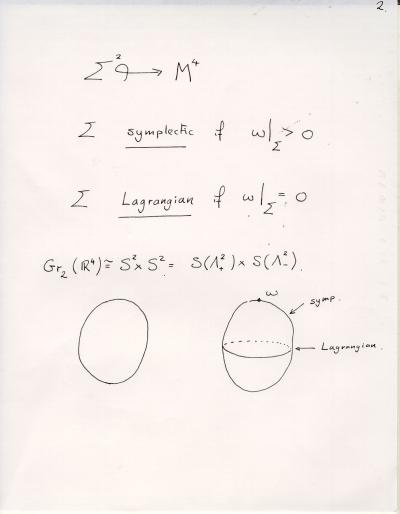 2.
Σ² ↬ M⁴
Σ symplectic if ω|_Σ > 0
Σ Lagrangian if ω|_Σ = 0.
Gr₂(ℝ⁴) ≅ S² × S² = S(Λ²₊) × S(Λ²₋).
ω
symp.
Lagrangian.